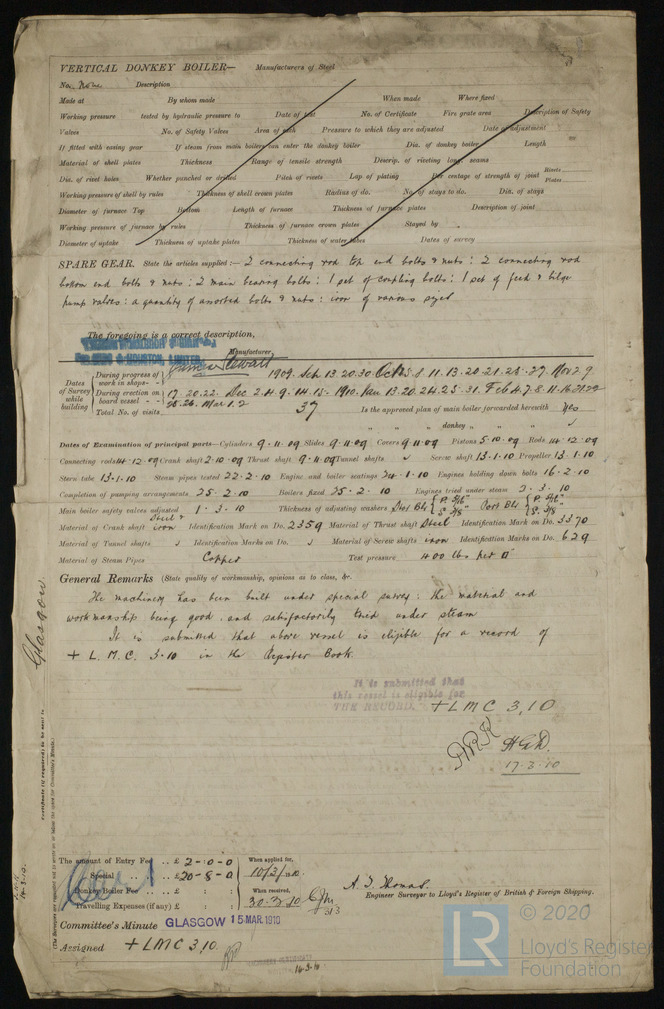 VERTICAL DONKEY BOILER— Manufacturers of Steel
No. None Description
Made at By whom made When made Where fixed
Working pressure tested by hydraulic pressure to Date of test No. of Certificate Fire grate area Description of Safety
Valves No. of Safety Valves Area of each Pressure to which they are adjusted Date of adjustment
If fitted with easing gear If steam from main boilers can enter the donkey boiler Dia. of donkey boiler Length
Material of shell plates Thickness Range of tensile strength Descrip. of riveting long. seams
Dia. of rivet holes Whether punched or drilled Pitch of rivets Lap of plating Per centage of strength of joint Rivets Plates
Working pressure of shell by rules Thickness of shell crown plates Radius of do. No. of stays to do. Dia. of stays
Diameter of furnace Top Bottom Length of furnace Thickness of furnace plates Description of joint
Working pressure of furnace by rules Thickness of furnace crown plates Stayed by
Diameter of uptake Thickness of uptake plates Thickness of water tubes Dates of survey
SPARE GEAR. State the articles supplied:— 2 connecting rod top end bolts & nuts: 2 connecting rod
bottom end bolts & nuts: 2 main bearing bolts: 1 set of coupling bolts: 1 set of feed & bilge
pump valves: a quantity of assorted bolts & nuts: iron of various sizes
The foregoing is a correct description,
Manufacturer.
Dates of Survey while building
During progress of work in shops - - 1909. Oct 5. 8. 11. 13. 20. 21. 25. 27. Nov 2. 9.
During erection on board vessel - - - 17. 20. 22. Dec 2. 4. 9. 14. 15. 1910. Jan 13. 20. 24. 25. 31. Feb 4. 7. 8. 11. 16.
25. 26. Mar 1. 2
Total No. of visits 37 Is the approved plan of main boiler forwarded herewith Yes
" " " donkey " " "
Dates of Examination of principal parts—Cylinders 9.11.09 Slides 9.11.09 Covers 9.11.09 Pistons 5.10.09 Rods 14.12.09
Connecting rods 14.12.09 Crank shaft 2.10.09 Thrust shaft 9.11.09 Tunnel shafts ✓ Screw shaft 13.1.10 Propeller 13.1.10
Stern tube 13.1.10 Steam pipes tested 22.2.10 Engine and boiler seatings 24.1.10 Engines holding down bolts 16.2.10
Completion of pumping arrangements 25.2.10 Boilers fixed 25.2.10 Engines tried under steam 2.3.10
Main boiler safety valves adjusted 1.3.10 Thickness of adjusting washers
Material of Crank shaft Steel & iron Identification Mark on Do. 2359 Material of Thrust shaft Steel Identification Mark on Do. 3370
Material of Tunnel shafts ✓ Identification Marks on Do. ✓ Material of Screw shafts iron Identification Marks on Do. 629
Material of Steam Pipes Copper Test pressure 400 lbs per □"
General Remarks (State quality of workmanship, opinions as to class, &c.
The machinery has been built under special survey: the material and
workmanship being good, and satisfactorily tried under steam
It is submitted that above vessel is eligible for a record of
+ L.M.C. 3-10 in the Register Book.
It is submitted that
this vessel is eligible for
THE RECORD. + LMC 3.10
17.3.10
Glasgow
The amount of Entry Fee .. £ 2 - 0 - 0 When applied for,
Special .. £ 20 - 8 - 0
Donkey Boiler Fee .. £ : : When received,
Travelling Expenses (if any) £ : : 30.3.10
A. J. Thomas.
Engineer Surveyor to Lloyd's Register of British & Foreign Shipping.
Committee's Minute GLASGOW 15 MAR. 1910
Assigned + LMC 3.10
LR
© 2020
Lloyd's Register
Foundation